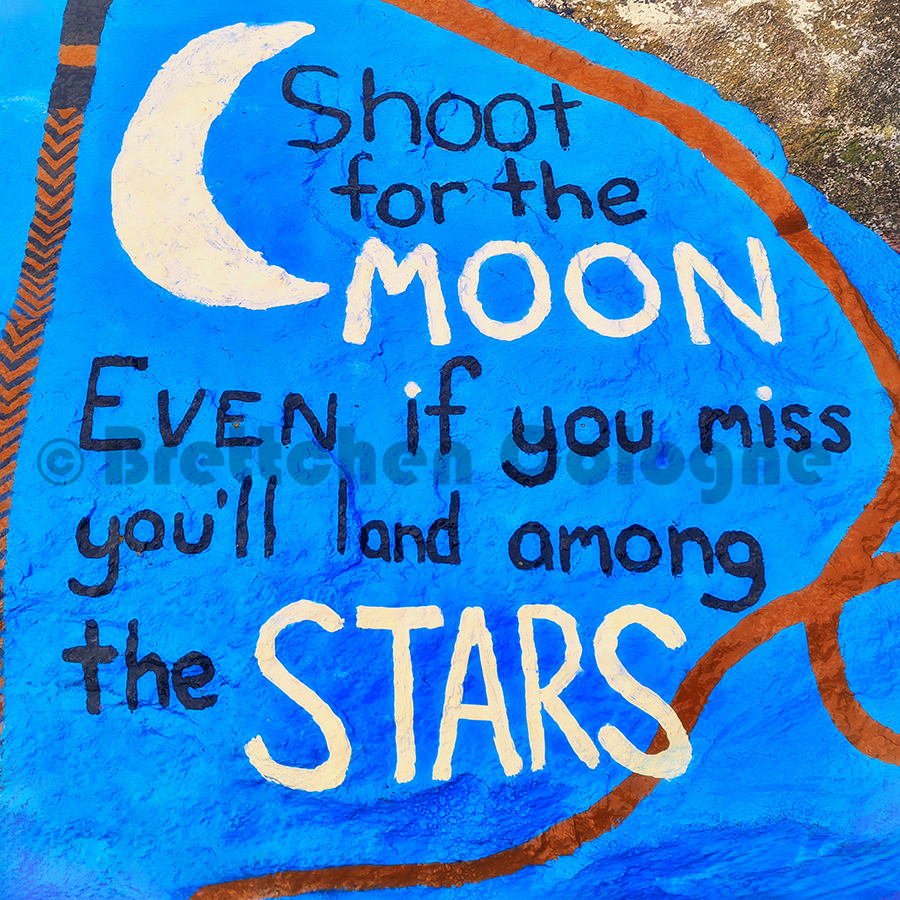 Shoot
for the
MOON
EVEN if you miss
© Brettchen Cologne
you'll land among
the STARS